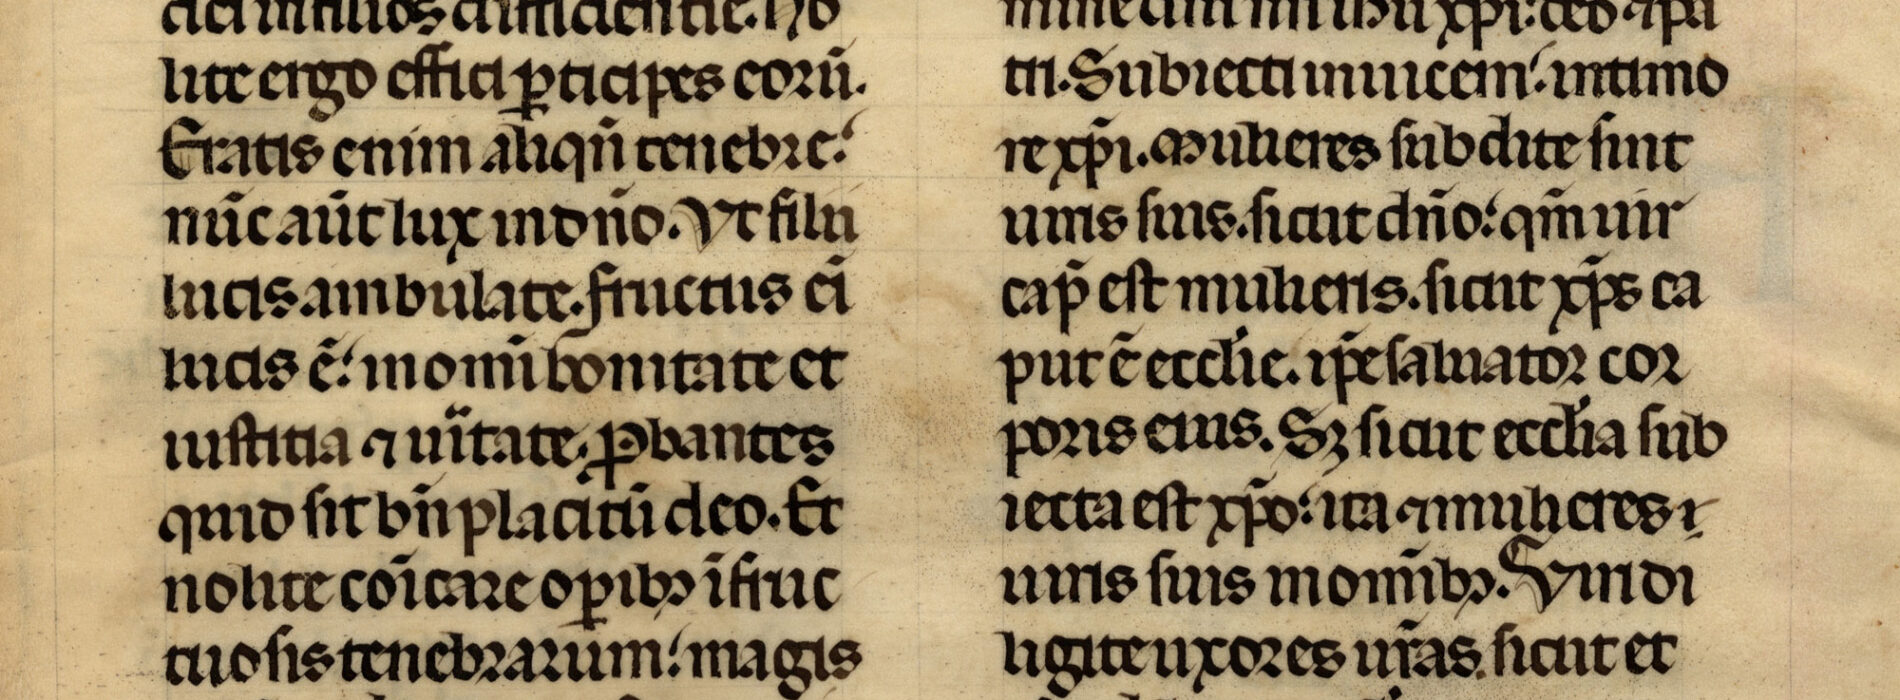 dei in filios diffidentie. No
lite ergo effici ꝑticipes eorū.
Eratis enim aliqn̄ tenebre:
nūc aūt lux in dn̄o. Vt filii
lucis ambulate. fructus ei̅
lucis ē: in omi̅ bonitate et
iustitia ⁊ ui̅tate. ꝓbantes
quid sit bn̄placitū deo. Et
nolite cōicare oꝑibꝫ īfruc
tuosis tenebrarum: magis
nri̅ ihu xp̅i: deo ⁊ pa
tri. Subiecti inuicem: in timo
re xp̅i. Mulieres subdite sint
uiris suis. sicut dn̄o: qm̄ uir
cap̅ est mulieris. sicut xp̅s ca
put ē eccl̅ie. ip̅e saluator cor
poris eius. Sꝫ sicut eccl̅ia sub
iecta est xp̅o: ita ⁊ mulieres
uiris suis in omi̅bꝫ. Viri di
ligite uxores ur̅as. sicut et